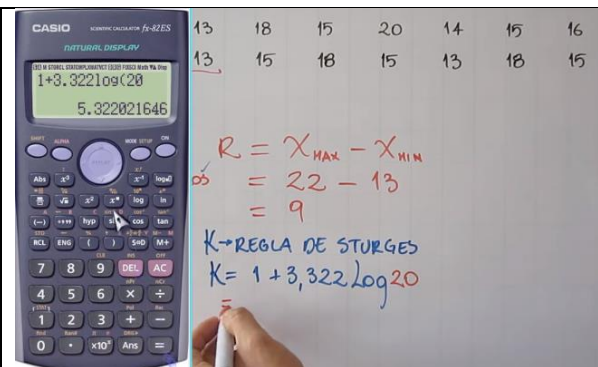 CASIO SCIENTIFIC CALCULATOR fx-82ES
NATURAL DISPLAY
1+3.322log(20
5.322021646
SHIFT ALPHA MODE SETUP ON
Abs x³ x⁻¹ log
x² log ln
(-) hyp sin cos tan
RCL ENG ( ) S⇔D M+
7 8 9 DEL AC
4 5 6 × ÷
1 2 3 + −
0 . ×10ˣ Ans =
13 18 15 20 14 15 16
13 15 18 15 13 18 15
R = XMAX − XMIN
os = 22 − 13
= 9
K→REGLA DE STURGES
K= 1 + 3,322 Log 20
=